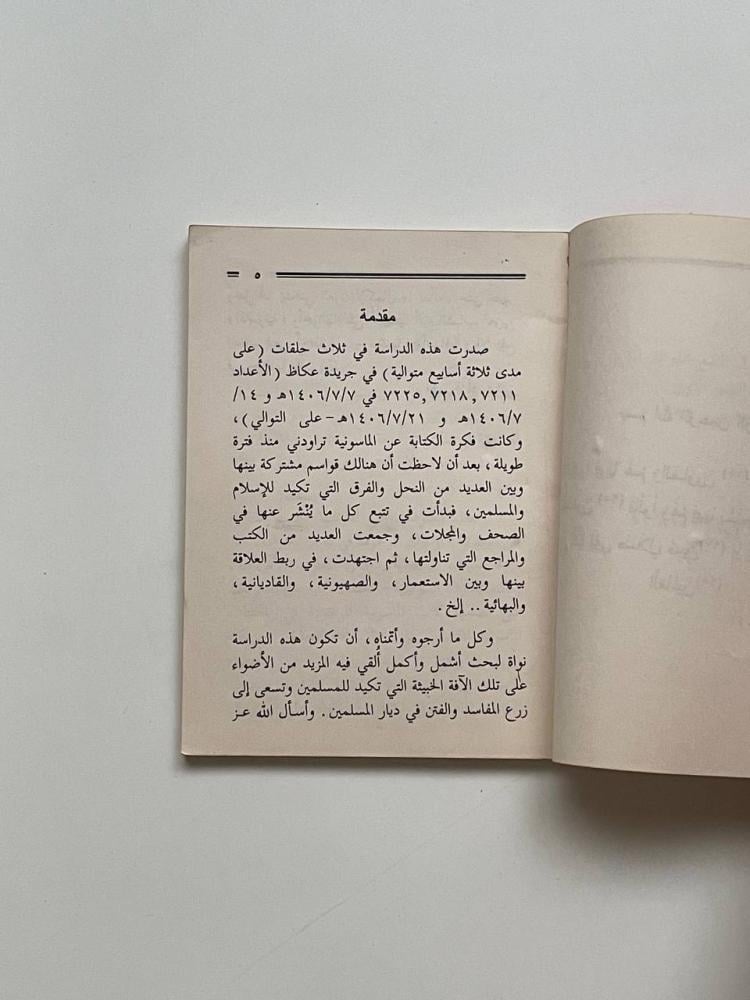 ٥
مقدمة
صدرت هذه الدراسة في ثلاث حلقات (على
مدى ثلاثة أسابيع متوالية) في جريدة عكاظ (الأعداد
٧٢١١, ٧٢١٨, ٧٢٢٥ في ١٤٠٦/٧/٧هـ و ١٤/
١٤٠٦/٧هـ و ١٤٠٦/٧/٢١هـ - على التوالي)،
وكانت فكرة الكتابة عن الماسونية تراودني منذ فترة
طويلة، بعد أن لاحظت أن هنالك قواسم مشتركة بينها
وبين العديد من النحل والفرق التي تكيد للإسلام
والمسلمين، فبدأت في تتبع كل ما يُنْشَر عنها في
الصحف والمجلات، وجمعت العديد من الكتب
والمراجع التي تناولتها، ثم اجتهدت، في ربط العلاقة
بينها وبين الاستعمار، والصهيونية، والقاديانية،
والبهائية .. إلخ.
وكل ما أرجوه وأتمناه، أن تكون هذه الدراسة
نواة لبحث أشمل وأكمل أُلقي فيه المزيد من الأضواء
على تلك الآفة الخبيثة التي تكيد للمسلمين وتسعى إلى
زرع المفاسد والفتن في ديار المسلمين. وأسأل الله عـز